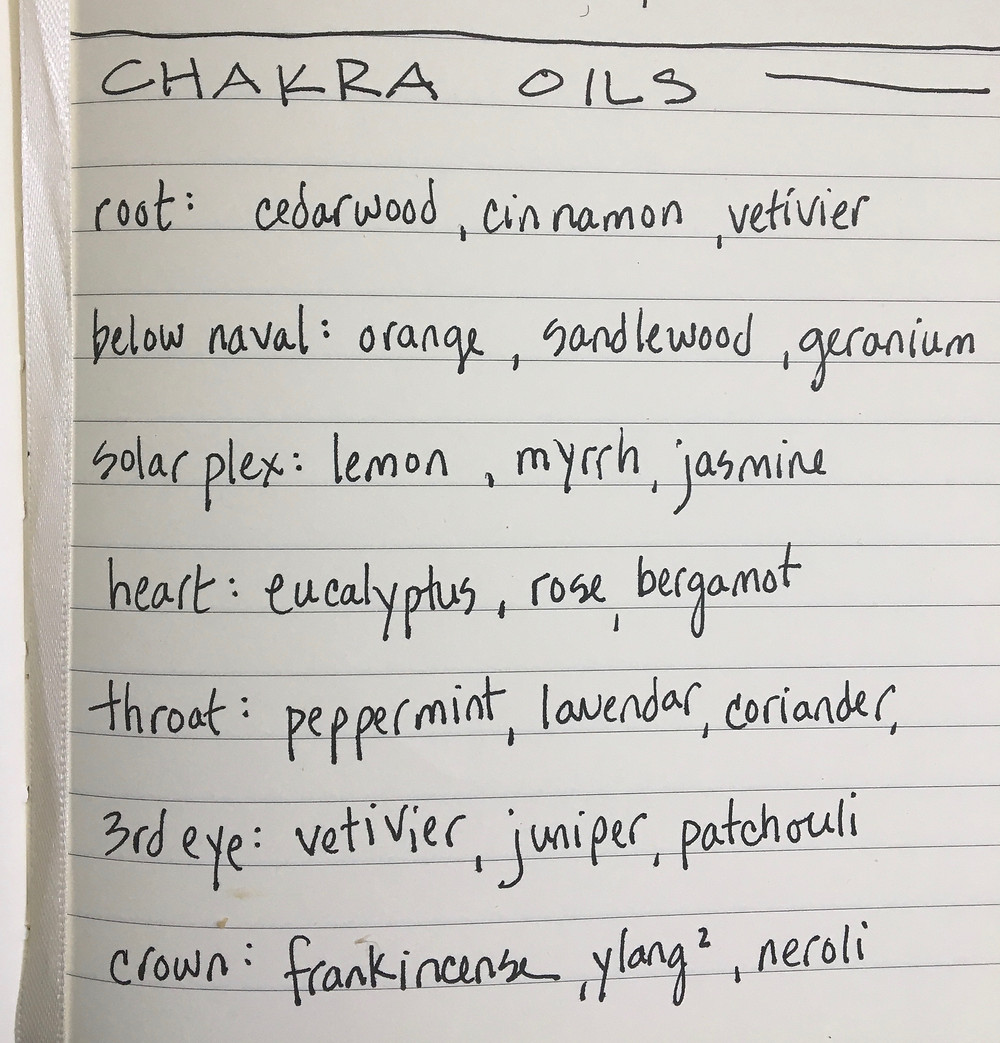 CHAKRA OILS
root: cedarwood, cinnamon, vetivier
below naval: orange, sandlewood, geranium
solar plex: lemon, myrrh, jasmine
heart: eucalyptus, rose, bergamot
throat: peppermint, lavendar, coriander,
3rd eye: vetivier, juniper, patchouli
crown: frankincense, ylang², neroli